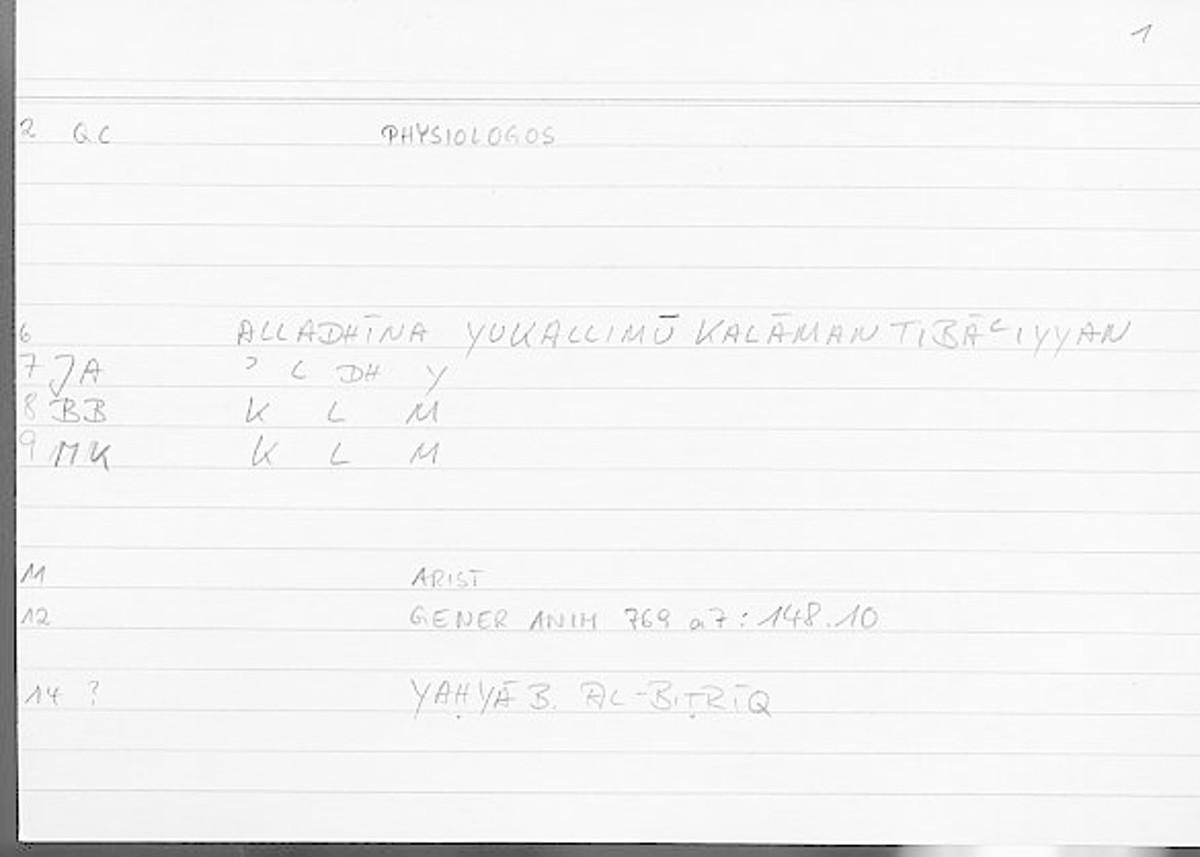 1
2 QC PHYSIOLOGOS
6 ALLADHĪNA YUKALLIMŪ KALĀMAN TIBĀʿIYYAN
7 JA ʾ L DH Y
8 BB K L M
9 MK K L M
11 ARIST
12 GENER ANIM 769 a7 : 148.10
14 ? YAḤYĀ B. AL-BIṬRĪQ